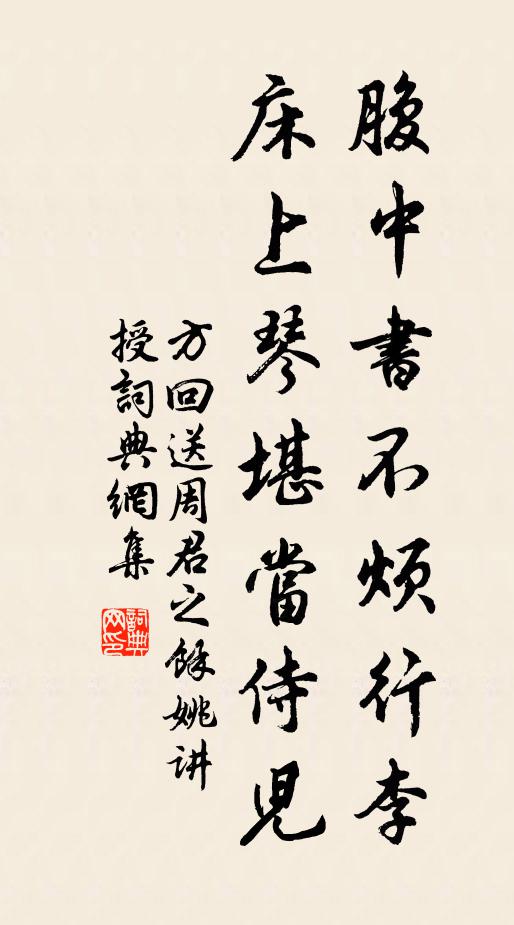 腹中書不煩行李
床上琴堪當侍兒
方回送周君之餘姚讲
授詞典網集
詞典網印